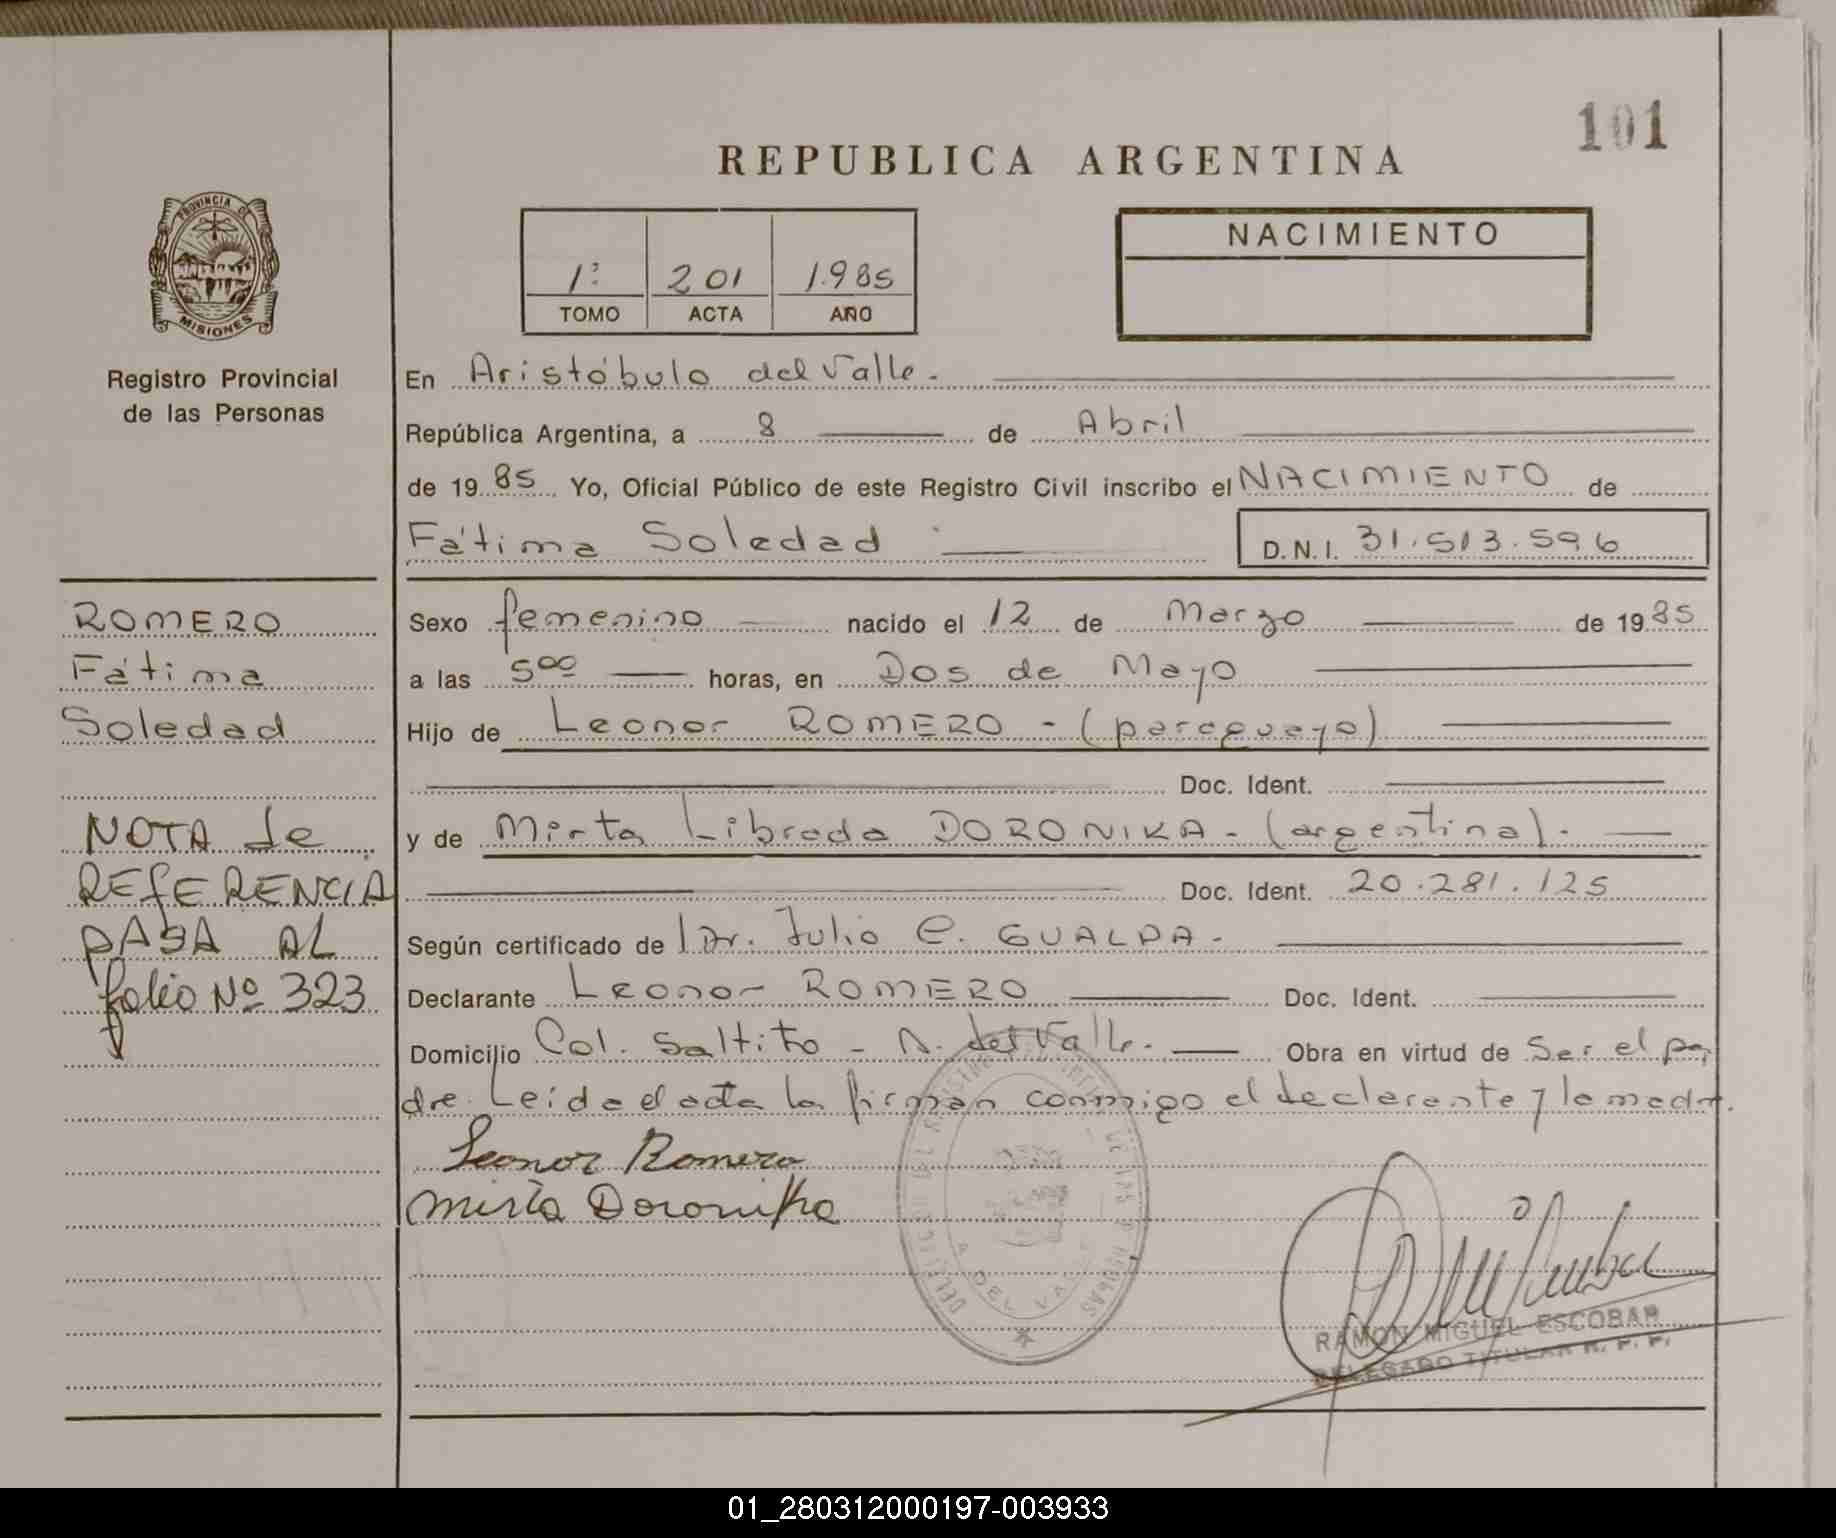 101
REPUBLICA ARGENTINA
PROVINCIA DE
MISIONES
Registro Provincial
de las Personas
1º 201 1.985
TOMO ACTA AÑO
NACIMIENTO
En Aristóbulo del Valle.
República Argentina, a 8 de Abril
de 19 85 Yo, Oficial Público de este Registro Civil inscribo el NACIMIENTO de
Fátima Soledad
D.N.I. 31.513.596
ROMERO
Fátima
Soledad
NOTA de
REfERENCIA
pASA AL
folio Nº 323
Sexo femenino nacido el 12 de Marzo de 19 85
a las 5 00 horas, en Dos de Mayo
Hijo de Leonor ROMERO - (paraguayo)
Doc. Ident.
y de Mirta Librada DORONIKA - (argentina).
Doc. Ident. 20.281.125
Según certificado de Dr. Julio C. GUALDA -
Declarante Leonor ROMERO Doc. Ident.
Domicilio Col. Saltito - A. del Valle. Obra en virtud de Ser el pa,
dre. Leída el acta la firman conmigo el declarante y la madre.
Leonor Romero
Mirta Doronika
A. DEL VALLE
RAMON MIGUEL ESCOBAR
DELEGADO TITULAR R. P. P.
01_280312000197-003933